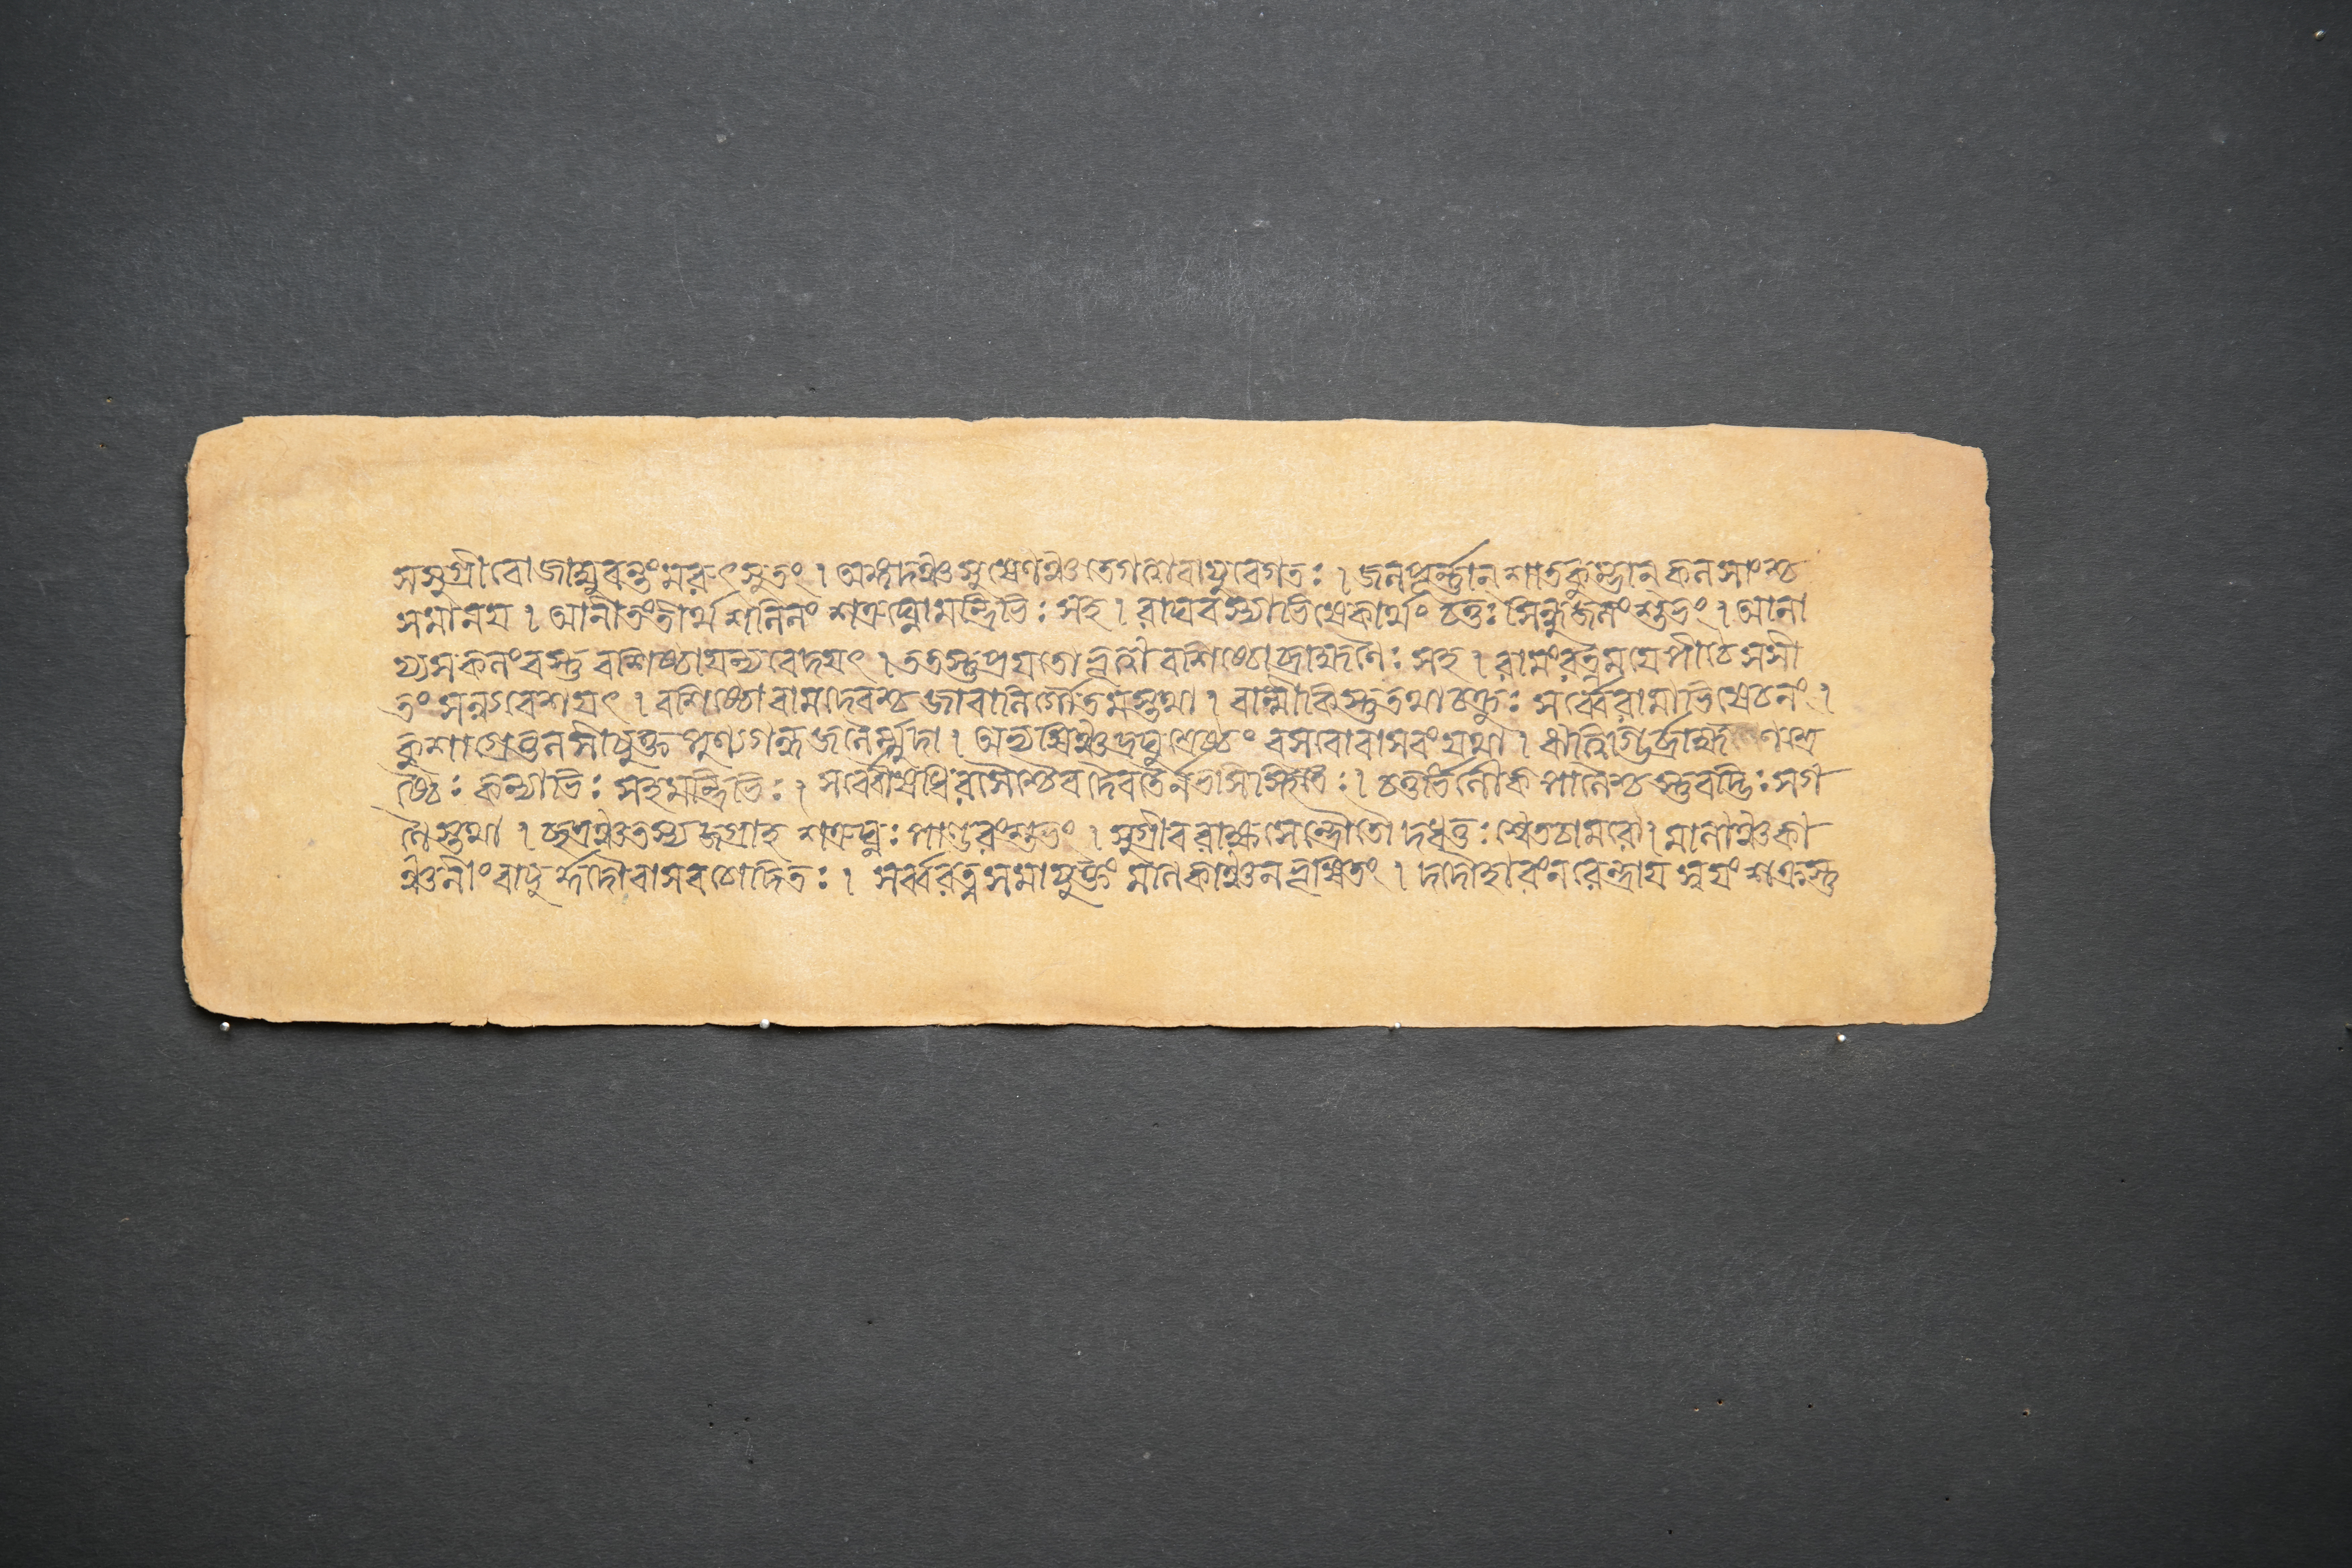 সসুগ্রীবোজাম্বুবন্তংমরুৎসুতং । অঙ্গদঞ্চসুষেণঞ্চতেগত্বাবায়ুবেগতঃ । জলপূর্ন্নান্ শাতকুম্ভান্ কলসাংশ্চ
সমানয় । আনীতংতীর্থশলিলং শত্রুঘ্নোমন্ত্রিভিঃ সহ । রাঘবস্যাভিষেকার্থং চতুঃসিন্ধুজলংশুভং । আনা
য্যসকলংবস্তু বশিষ্ঠায়ন্যবেদয়ৎ । ততস্তুপ্রয়তোবৃদ্ধোবশিষ্ঠোব্রাহ্মণৈঃ সহ । রামংরত্নময়েপীঠেসসী
তংসন্ন্যবেশয়ৎ । বশিষ্ঠোবামদেবশ্চজাবালির্গৌতমস্তথা । বাল্মীকিস্তুতথাচক্রুঃ সর্ব্বেরামাভিষেচনং ।
কুশাগ্রেতুলসীযুক্ত পুণ্যগন্ধজলৈর্ম্মুদা । অভ্যষিঞ্চদ্রঘুশ্রেষ্ঠং বসবোবাসবংযথা । ঋত্বিগ্ভির্ব্রাহ্মণৈশ্রে
ষ্ঠৈঃ কন্যাভিঃ সহমন্ত্রিভিঃ । সর্বৌষধিরসৈশ্চৈব দৈবতৈর্নভসিস্থিতৈঃ । চতুর্ভির্লোকপালৈশ্চস্তুবদ্ভিঃ সগ
ণৈস্তথা । ছত্রঞ্চতস্যজগ্রাহ শত্রুঘ্নঃ পাণ্ডরংশুভং । সুগ্রীবরাক্ষসেন্দ্রৌতৌ দধতুঃ শ্বেতচামরৌ । মালাঞ্চকা
ঞ্চনীংবায়ুর্দ্দদৌবাসবচোদিতঃ । সর্ব্বরত্নসমাযুক্তং মণিকাঞ্চনভূষিতং । দদৌহারংনরেন্দ্রায়স্বয়ংশক্রস্তু